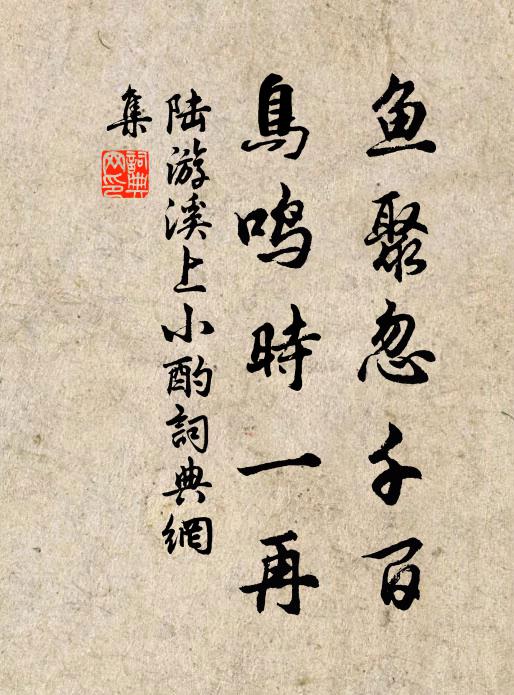 鱼聚忽千百
鳥鸣時一再
陆游溪上小酌詞典網
集
詞典
网印